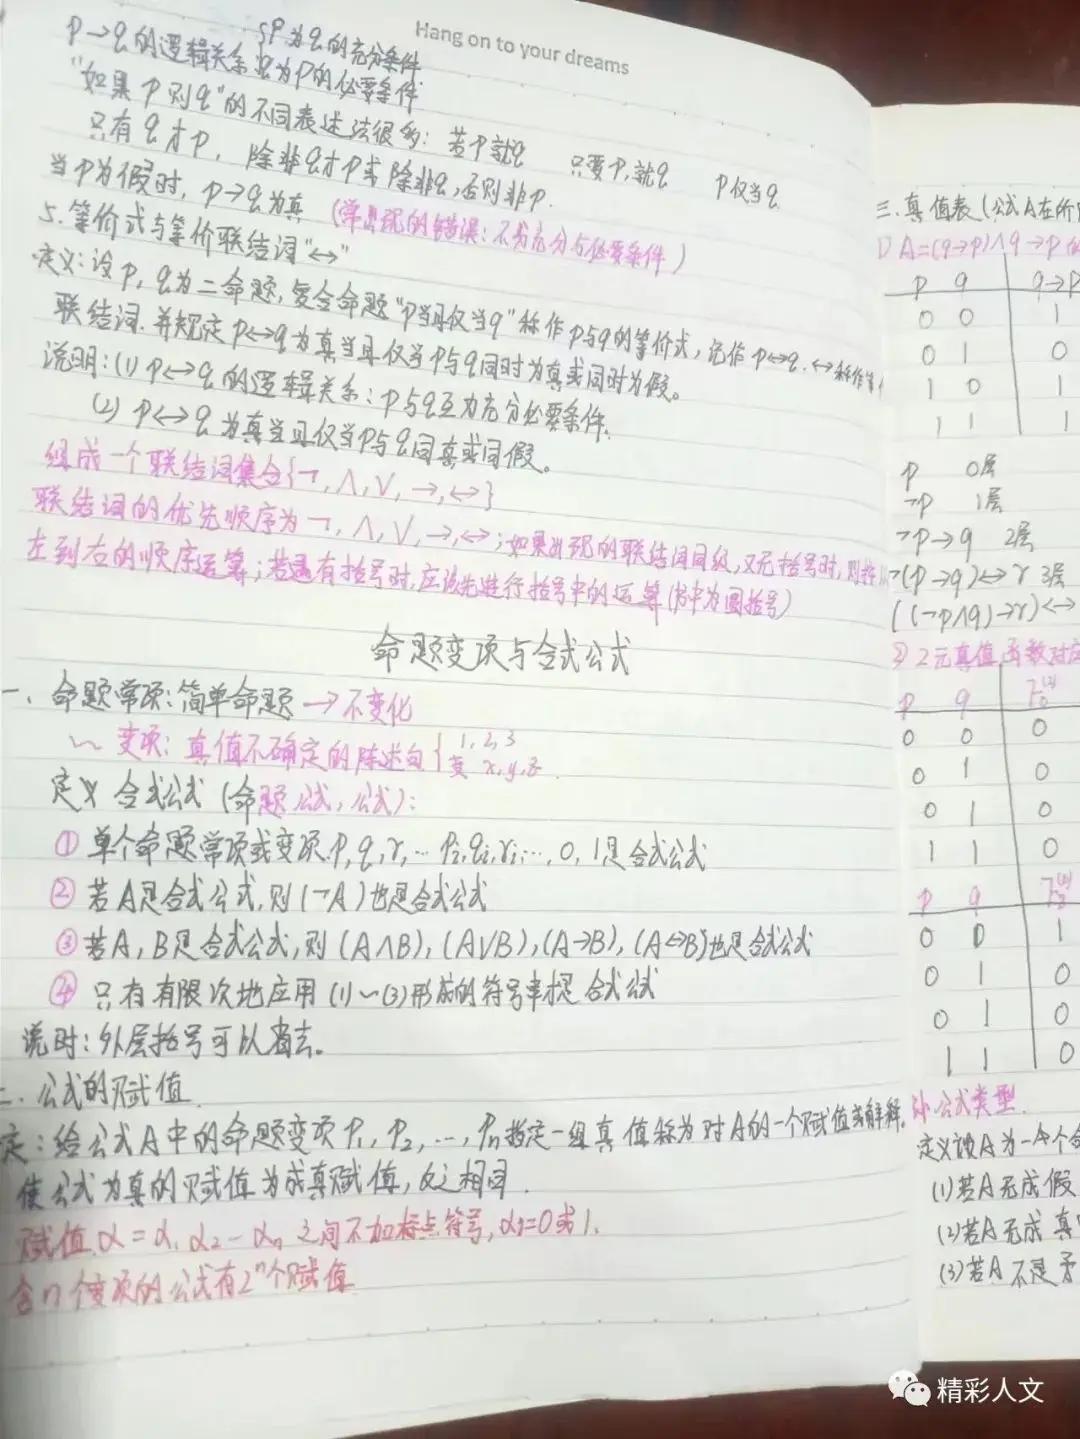 Hang on to your dreams
p→q的逻辑关系 {p为q的充分条件
q为p的必要条件
"如果p则q"的不同表述法很多：若p就q 只要p,就q p仅当q
只有q才p, 除非q才p或除非q,否则非p.
当p为假时, p→q为真 (常出现的错误：不分充分与必要条件)
5.等价式与等价联结词"↔"
定义：设p, q为二命题,复合命题"p当且仅当q"称作p与q的等价式,记作p↔q.↔称作等
联结词.并规定p↔q为真当且仅当p与q同时为真或同时为假。
说明：(1) p↔q的逻辑关系：p与q互为充分必要条件.
(2) p↔q为真当且仅当p与q同真或同假。
组成一个联结词集合{¬,∧,∨,→,↔}
联结词的优先顺序为¬,∧,∨,→,↔;如果出现的联结词同级,又无括号时,则按
左到右的顺序运算;若遇有括号时,应该先进行括号中的运算(书中为圆括号)
命题变项与合式公式
一、命题常项：简单命题→不变化
变项：真值不确定的陈述句{1,2,3
变 x,y,z
定义 合式公式(命题公式,公式)：
①单个命题常项或变项p,q,r,…pi,qi,ri,…,0,1是合式公式
②若A是合式公式,则(¬A)也是合式公式
③若A,B是合式公式,则(A∧B),(A∨B),(A→B),(A↔B)也是合式公式
④只有有限次地应用(1)~(3)形成的符号串才是合式公式
说明：外层括号可以省去。
二、公式的赋值
定：给公式A中的命题变项p1,p2,…,pn指定一组真值称为对A的一个赋值或解释.
使公式为真的赋值为成真赋值,反之相同.
赋值α=α1α2-αn之间不加标点符号,αi=0或1.
含n个变项的公式有2ⁿ个赋值
三.真值表(公式A在所
A=(q→p)∧q→p的
p q q→p
0 0 1
0 1 0
1 0 1
1 1 1
p 0层
¬p 1层
¬p→q 2层
¬(p→q)↔r 3层
((¬p∧q)→r)↔
②2元真值函数对应
p q F0(2)
0 0 0
0 1 0
0 1 0
1 1 0
p q
0 0 1
0 1 0
0 1 0
1 1 0
公式类型.
定义设A为一个命
(1)若A无成假
(2)若A无成真
(3)若A不是矛
精彩人文